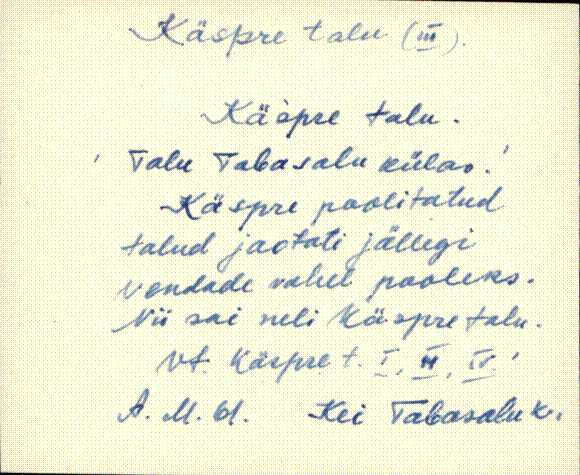 Käspre talu (III).
Kä`spre talu.
' Talu Tabasalu külas.'
Käspre poolitatud
talud jaotati jällegi
vendade vahel pooleks.
Nii sai neli Käspre talu.
Vt. Käspre t. I, II, IV.'
A. M. 61. Kei Tabasalu k.